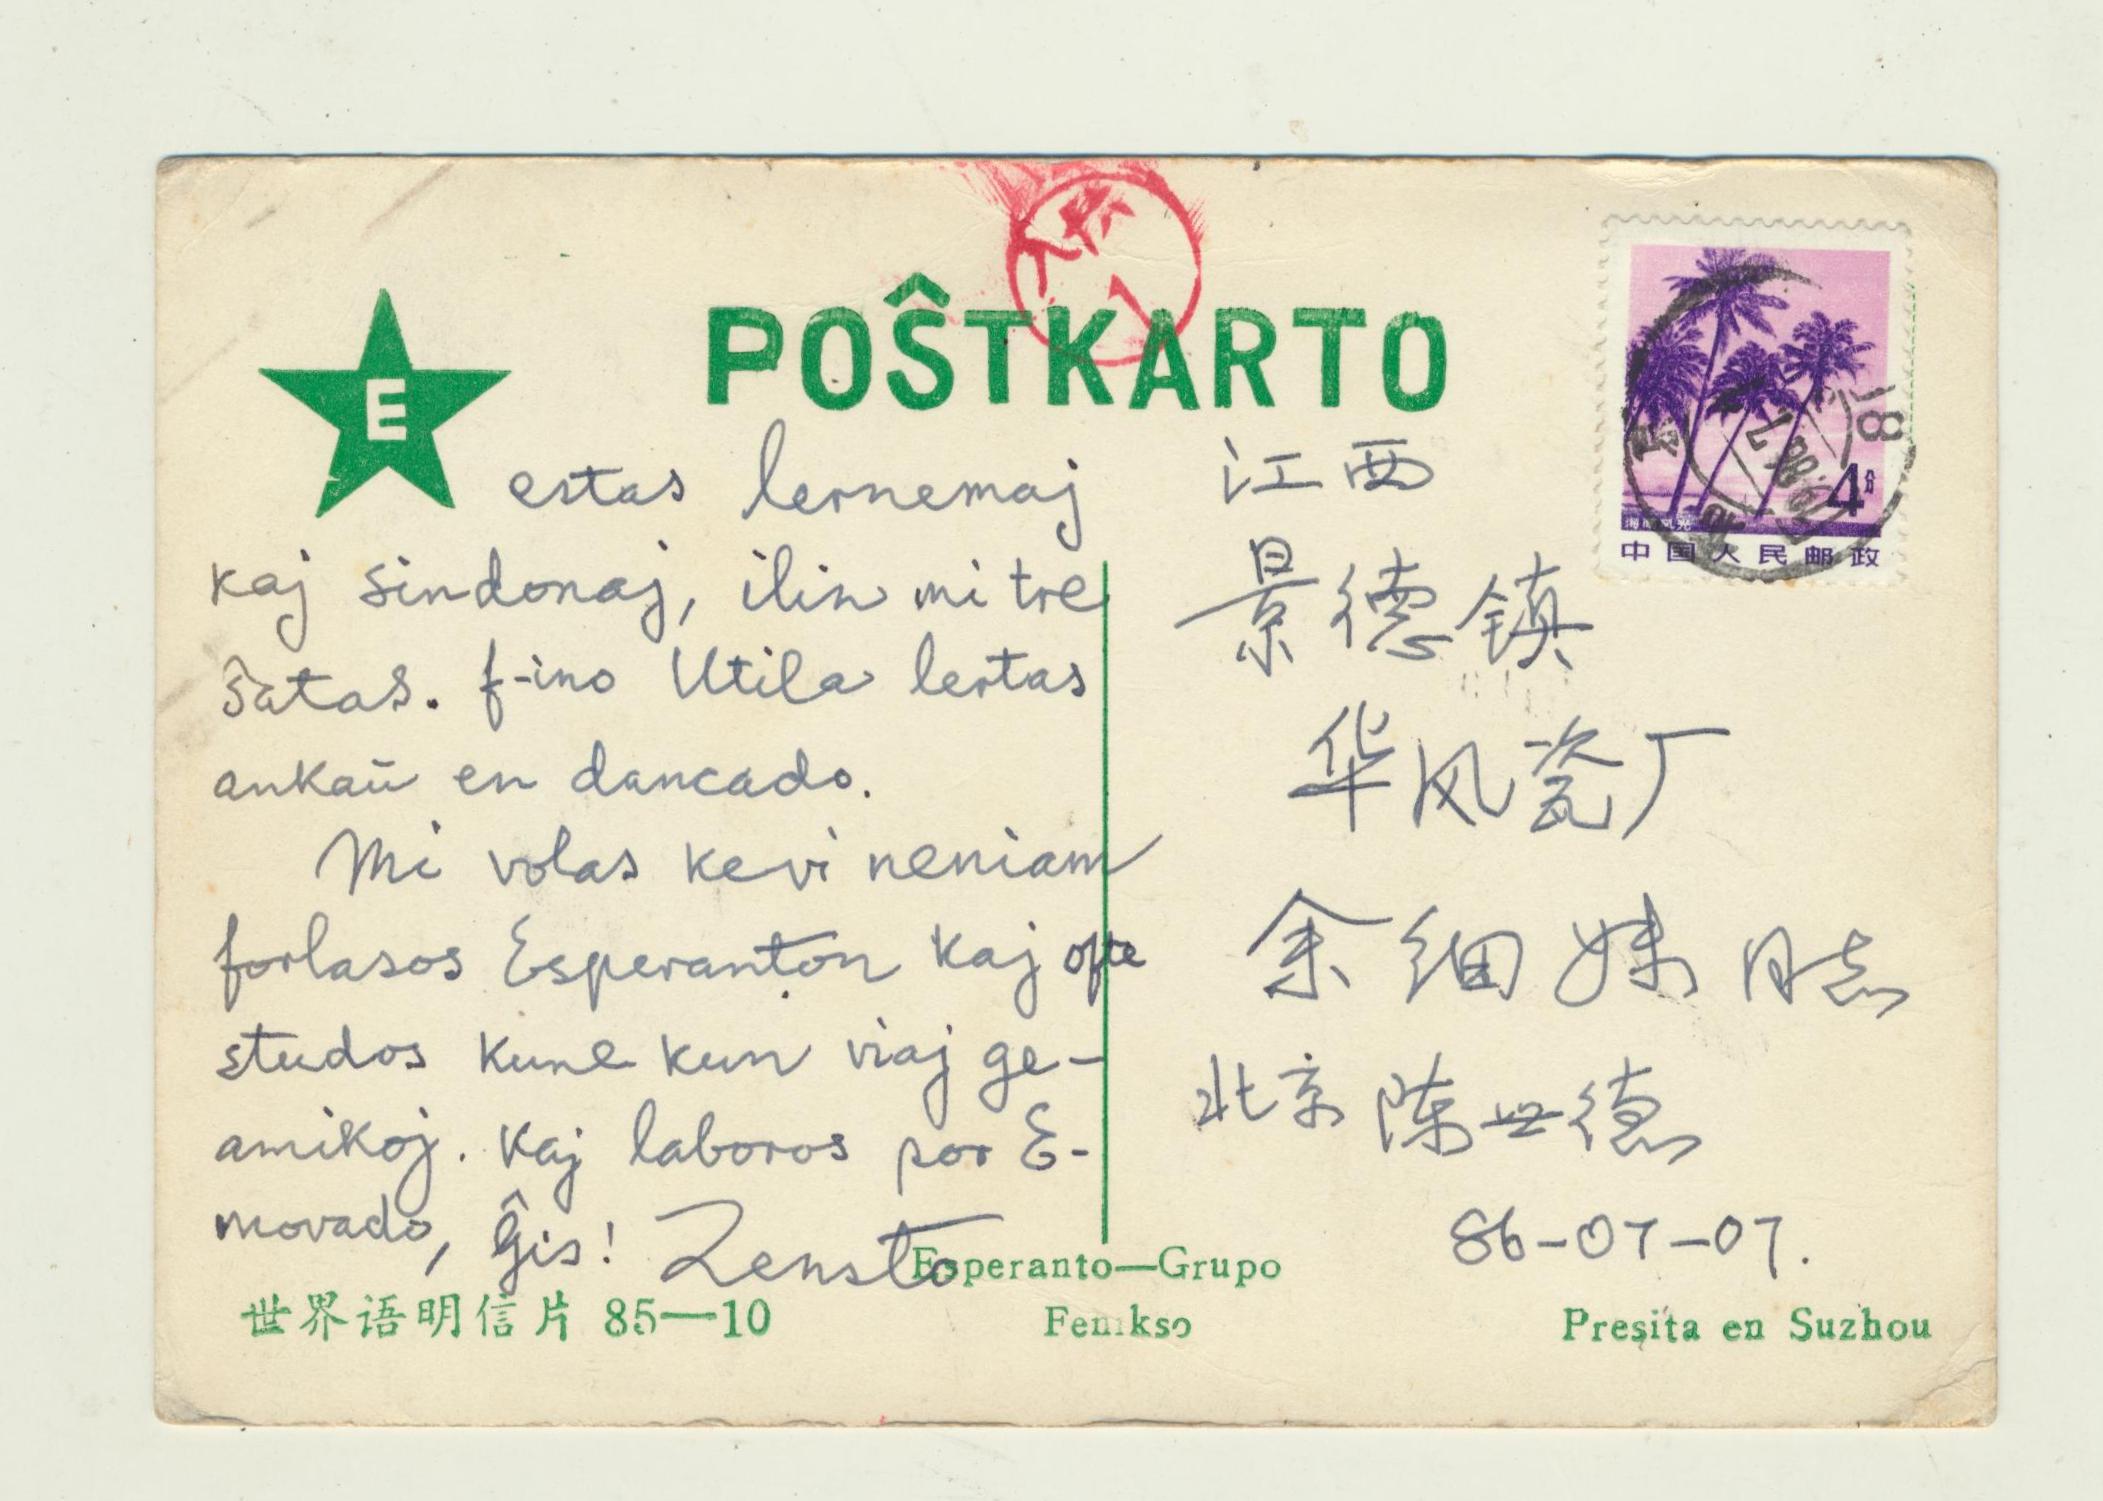 POŜTKARTO
E
estas lernemaj
kaj sindonaj, ilin mi tre
ŝatas. f-ino Utila lertas
ankaŭ en dancado.
Mi volas ke vi neniam
forlasos Esperanton kaj ofte
studos kune kun viaj ge-
amikoj. Kaj laboros por E-
movado, Ĝis! Zensto
江西
景德镇
华风瓷厂
余细妹 同志
北京 陈世德
86-07-07.
4分
中国人民邮政
Esperanto—Grupo
Fenikso
世界语明信片 85—10
Presita en Suzhou